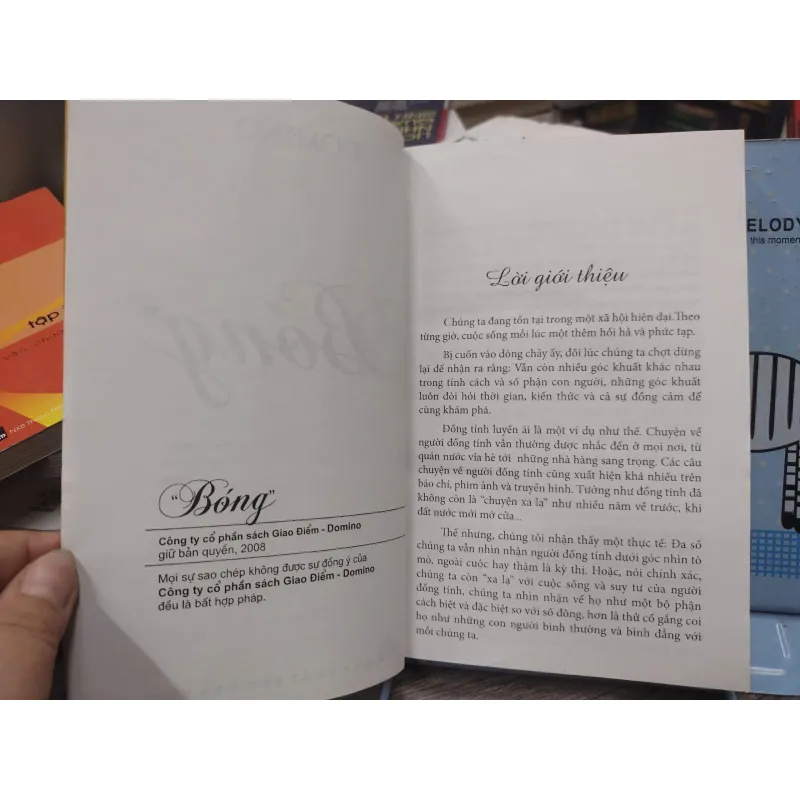 "Bóng"
Công ty cổ phần sách Giao Điểm - Domino
giữ bản quyền, 2008
Mọi sự sao chép không được sự đồng ý của
Công ty cổ phần sách Giao Điểm - Domino
đều là bất hợp pháp.
Lời giới thiệu
Chúng ta đang tồn tại trong một xã hội hiện đại. Theo
từng giờ, cuộc sống mỗi lúc một thêm hối hả và phức tạp.
Bị cuốn vào dòng chảy ấy, đôi lúc chúng ta chợt dừng
lại để nhận ra rằng: Vẫn còn nhiều góc khuất khác nhau
trong tính cách và số phận con người, những góc khuất
luôn đòi hỏi thời gian, kiến thức và cả sự đồng cảm để
cùng khám phá.
Đồng tính luyến ái là một ví dụ như thế. Chuyện về
người đồng tính vẫn thường được nhắc đến ở mọi nơi, từ
quán nước vỉa hè tới những nhà hàng sang trọng. Các câu
chuyện về người đồng tính cũng xuất hiện khá nhiều trên
báo chí, phim ảnh và truyền hình. Tưởng như đồng tính đã
không còn là "chuyện xa lạ" như nhiều năm về trước, khi
đất nước mới mở cửa...
Thế nhưng, chúng tôi nhận thấy một thực tế: Đa số
chúng ta vẫn nhìn nhận người đồng tính dưới góc nhìn tò
mò, ngoài cuộc hay thậm là kỳ thị. Hoặc, nói chính xác,
chúng ta còn "xa lạ" với cuộc sống và suy tư của người
đồng tính, chúng ta nhìn nhận về họ như một bộ phận
cách biệt và đặc biệt so với số đông, hơn là thử cố gắng coi
họ như những con người bình thường và bình đẳng với
mỗi chúng ta.
TẬP
ELODY
this momen